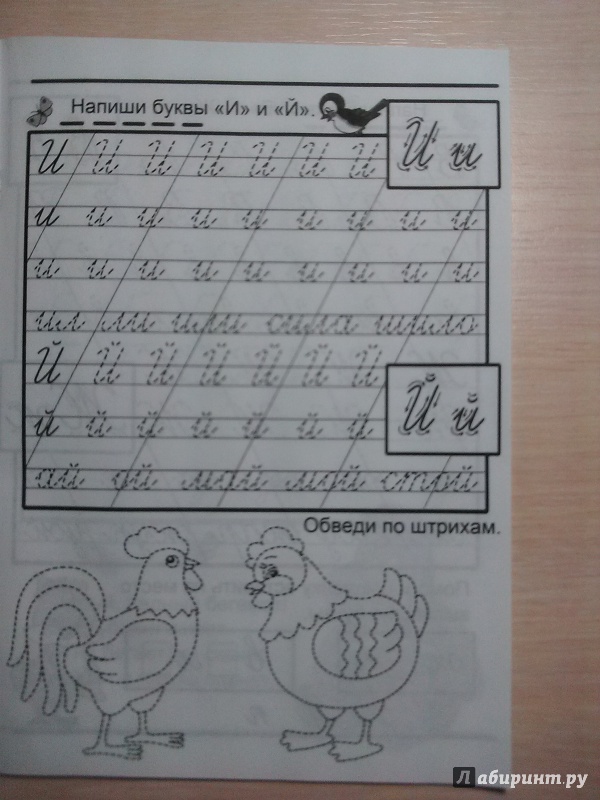 Напиши буквы «И» и «Й».
И И И И И И И И и
и и и и и и и и и
и и и и и и и и и
ил ли или сила шило
Й Й Й Й Й Й Й
й й й й й й й Й й
ай ой май мой строй
Обведи по штрихам.
Лабиринт.ру